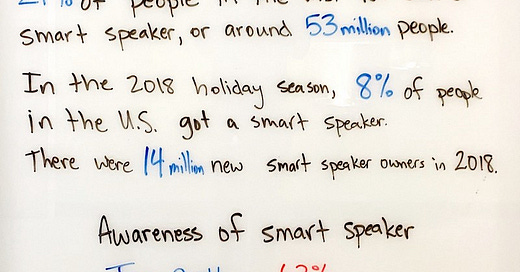 21% of people in the
smart speaker, or around 53 million people.
In the 2018 holiday season, 8% of people
in the U.S. got a smart speaker.
There were 14 million new smart speaker owners in 2018.
Awareness of smart speaker